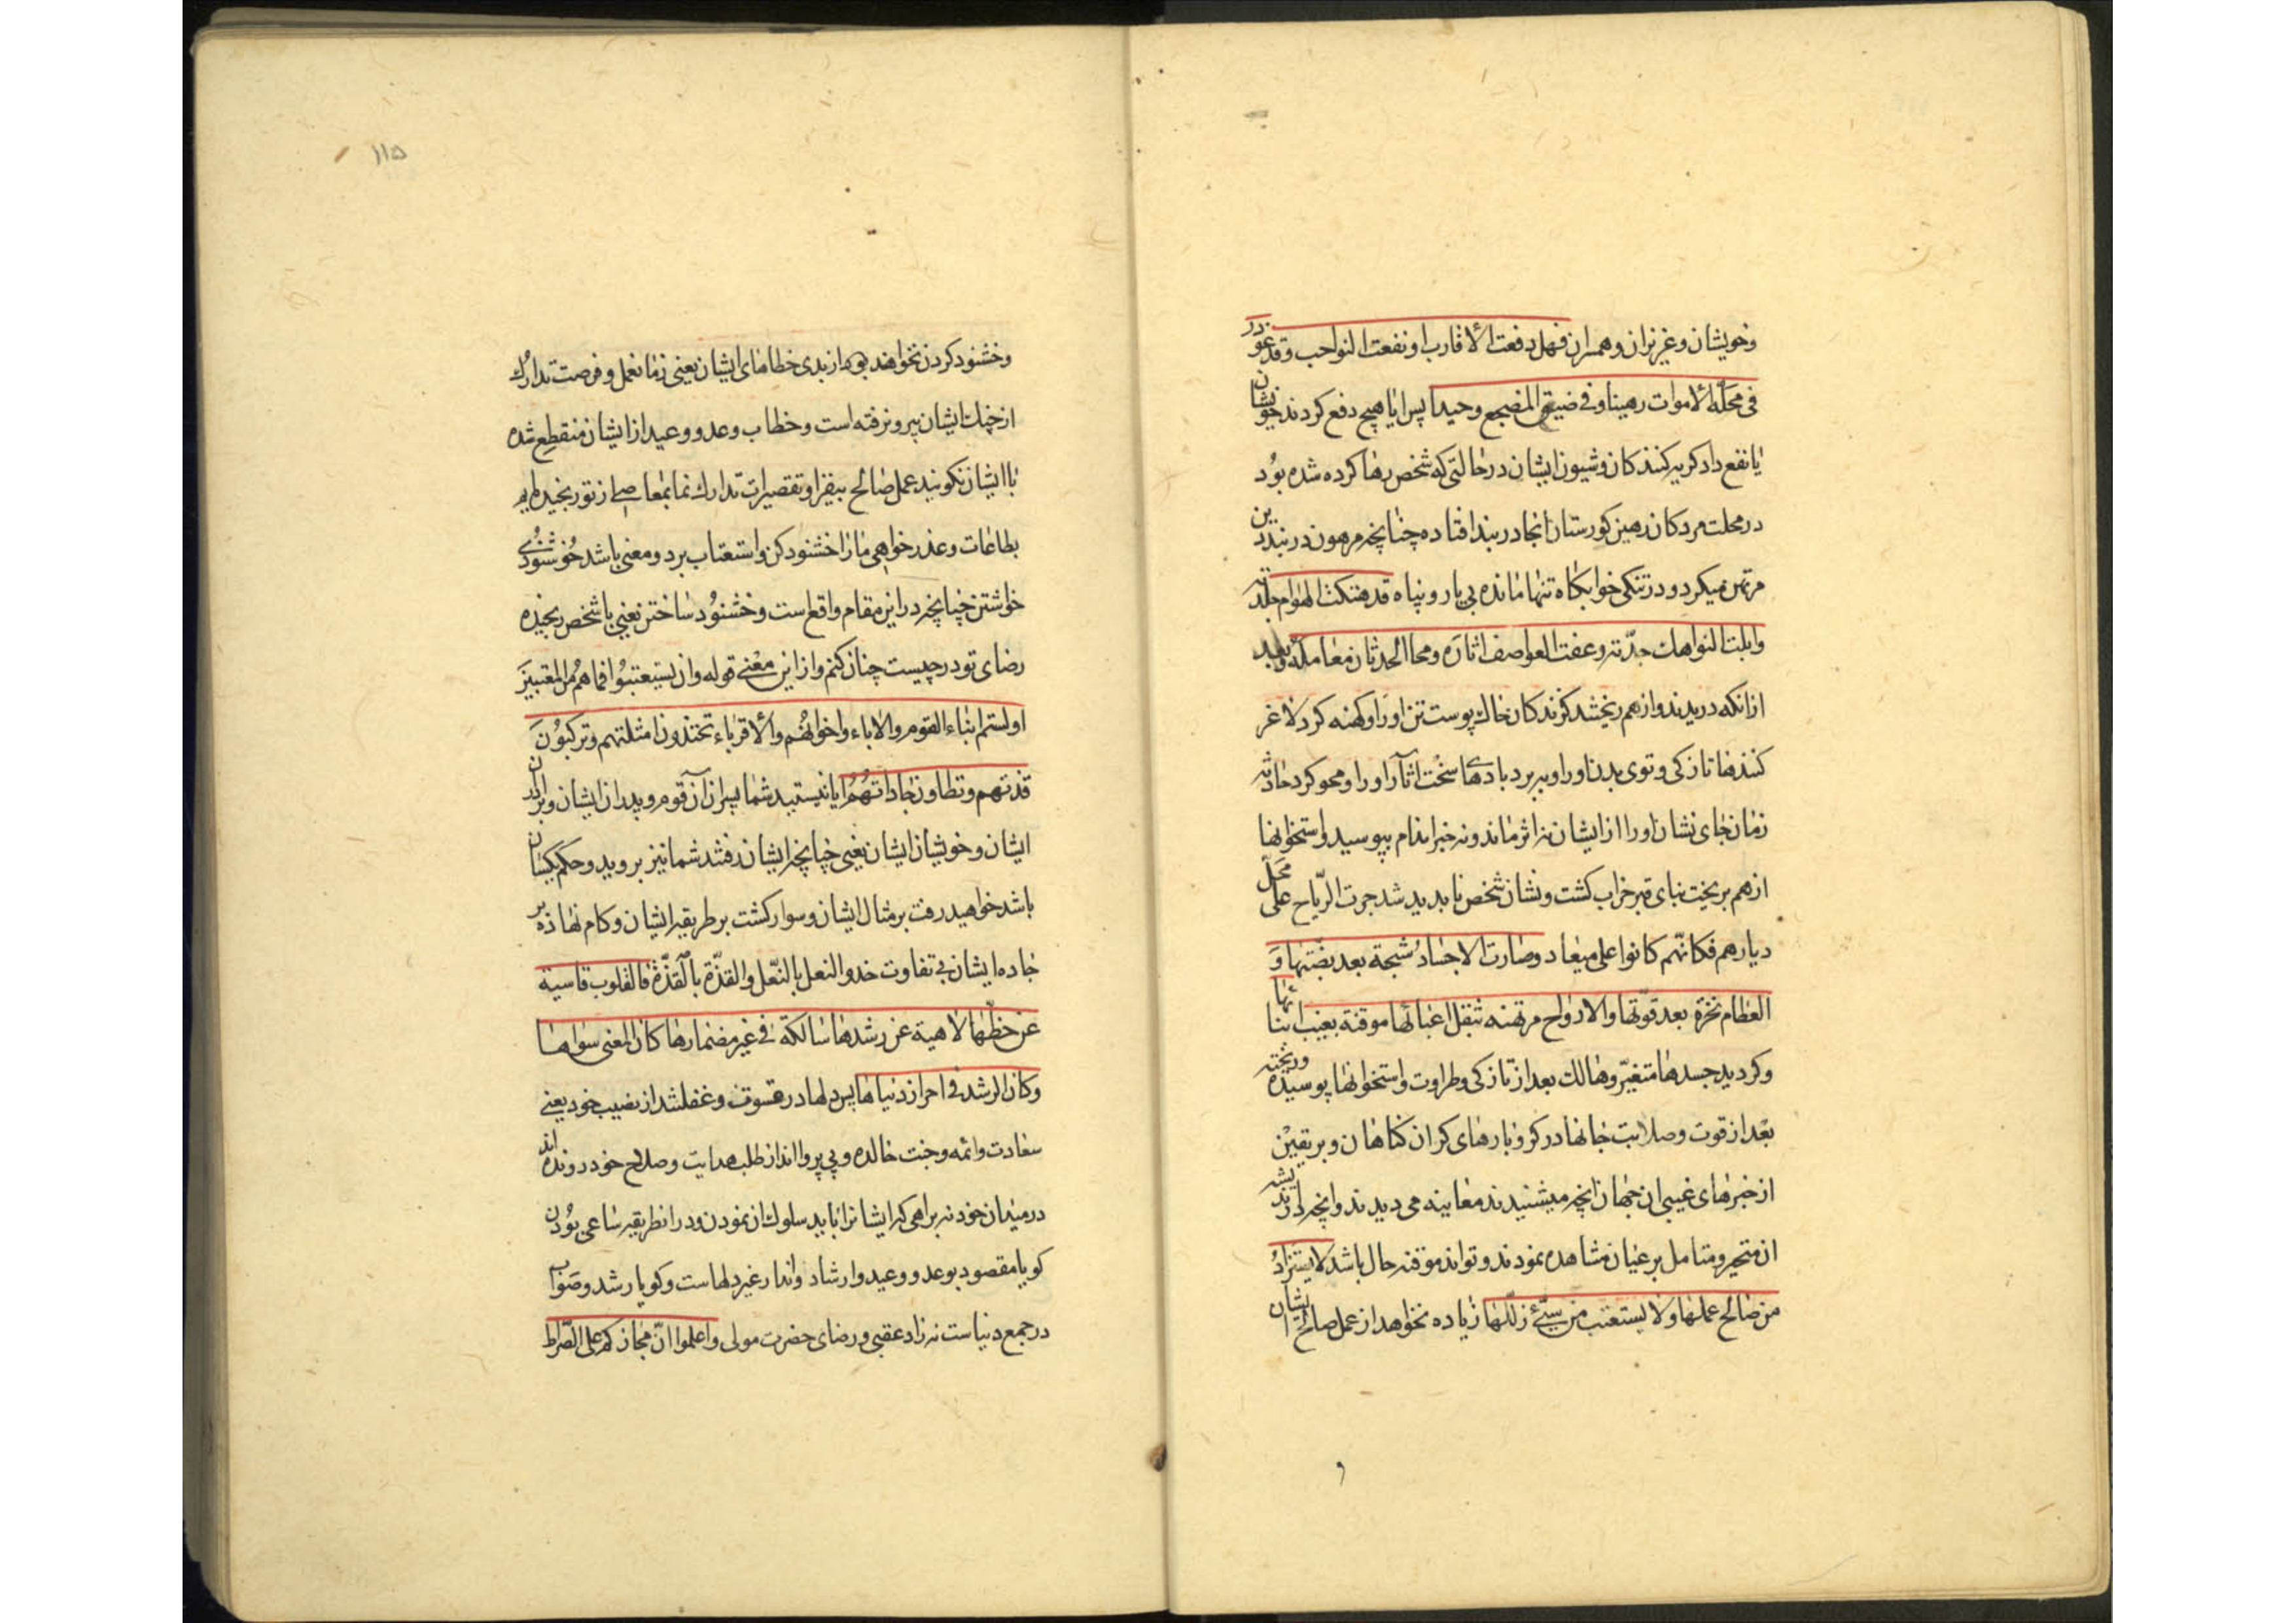 وخویشان و عزیزان و همسران فهل دفعت الأقارب او نفعت النواحب وقد غودر
فی محلّة الاموات رهینا و فی ضیق المضجع وحیدا پس ایا هیچ دفع کردند خویشان
یا نفع داد کریه کنندکان و شیون ایشان در حالتی که شخص رها کرده شده بود
در محلت مردکان رهین کورستان انجا در بند افتاده چنانچه مرهون در بند دین
مرتهن میکردد و در تنکی خوابکاه تنها مانده بی یار و پناه قد هتکت الهوام جلدته
وابلت النواهك جدّته وعفت العواصف اثاره ومحا الحدثان معامله وبعد
ازانکه دریدند و از هم ریختند کزندکان خاك پوست تن او را و کهنه کرد لاغر
کنندها تازکی و توی بدن او را و ببرد بادهای سخت اثار او را و محو کرد حادثه
زمان جای نشان او را از ایشان نه اثر ماند و نه خبر اندام بپوسید و استخوانها
از هم بریخت بنای قبر خراب کشت و نشان شخص ناپدید شد جرت الرّیاح علی محلّ
دیارهم فکانّهم کانوا علی میعاد وصارت الاجساد شحبة بعد بضّتها و
العظام نخرة بعد قوّتها والارواح مرتهنه بثقل اعبائها موقنة بغیب انبائها
وکردید جسدها متغیّر و هالك بعد از تازکی و طراوت و استخوانها پوسیده و ریخته
بعد از قوت و صلابت جانها در کرو بارهای کران کناهان و بر یقین
از خبرهای غیبی ان جهان انچه میشنیدند معاینه می دیدند و انچه در اندیشه
ان متحیر و متامل بر عیان مشاهده نمودند و تواند موقنه حال باشد لا یستزاد
من صالح عملها ولا یستعتب من سیّئ زللها زیاده نخواهد از عمل صالح ایشان
١١٥
وخشنود کردن نخواهند بود از بدی خطاهای ایشان یعنی زمان عمل و فرصت تدارك
از چنك ایشان بیرون رفته است و خطاب وعد و وعید از ایشان منقطع شده
با ایشان نکویند عمل صالح بیفزا و تقصیرات تدارك نما بمعاصی از تو رنجیده‌ایم
بطاعات و عذرخواهی مارا خشنود کن و استعتاب بر دو معنی باشد خوشنودی
خواستن چنانچه در این مقام واقع است و خشنود ساختن یعنی با شخص رنجیده
رضای تو در چیست چنان کنم و از این معنی قوله وان یستعتبوا فما هم من المعتبین
اولستم ابناء القوم والاباء واخوانهم والأقرباء تحتذون امثلتهم وترکبون
قدتهم وتطاون جادتهم ایا نیستید شما پسران آن قوم و پدران ایشان و برادران
ایشان و خویشان ایشان یعنی چنانچه ایشان رفتند شما نیز بروید و حکم یکسان
باشد خواهید رفت بر مثال ایشان و سوار کشت بر طریقه ایشان و کام نهاده بر
جاده ایشان بی تفاوت حذو النعل بالنّعل والقذّة بالقذّة فالقلوب قاسیة
عن حظّها لاهیة عن رشدها سالکة فی غیر مضمارها کان المعنی سواها
وکان الرشد فی احراز دنیاها پس دلها در قسوت و غفلتند از نصیب خود یعنی
سعادت دائمه و جنت خالده و بی پروا اند از طلب هدایت و صلاح خود رونده‌اند
در میدان خود نه براهی که ایشانرا باید سلوك ان نمودن و در ان طریقه ساعی بودن
کویا مقصود بوعد و وعید و ارشاد و انذار غیر دلهاست و کویا رشد و صواب
در جمع دنیاست نه زاد عقبی و رضای حضرت مولی واعلموا انّ مجازکم علی الصّراط